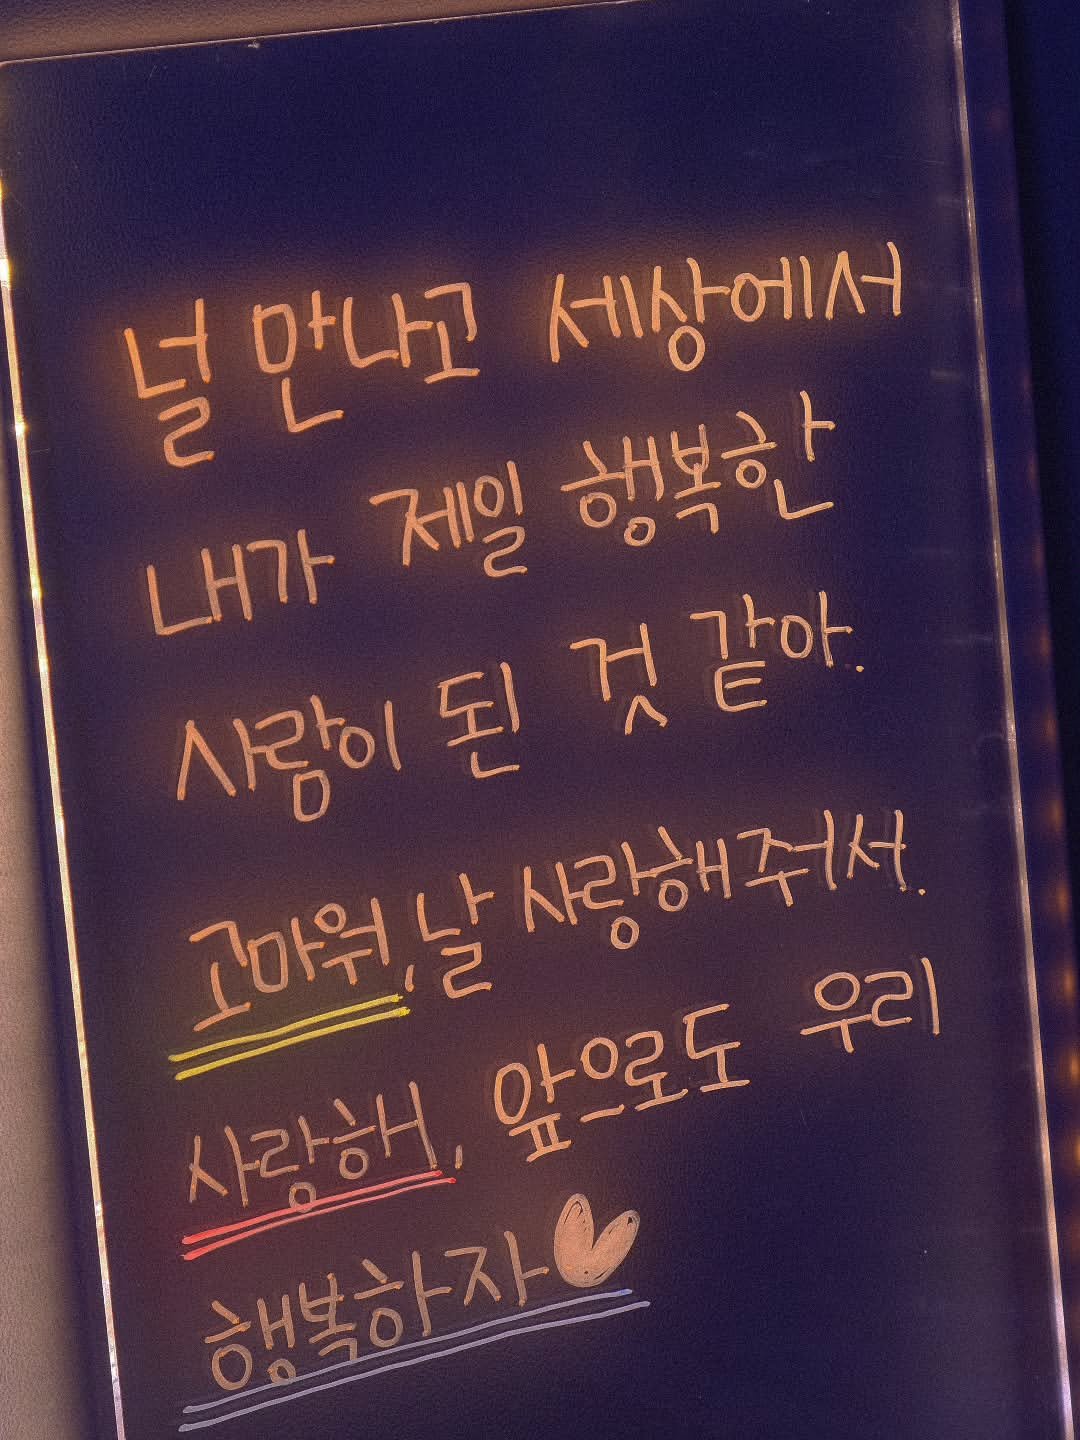 널 만나고 세상에서
내가 제일 행복한
사람이 된 것 같아.
고마워, 날 사랑해줘서.
사랑해, 앞으로도 우리
행복하자